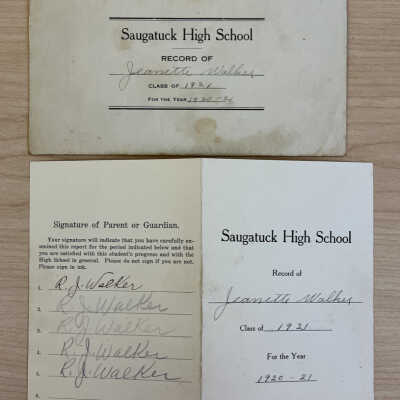 Saugatuck High School
RECORD OF
Jeanette Walker
CLASS OF 1921
FOR THE YEAR 1920-21
Signature of Parent or Guardian.
Your signature will indicate that you have carefully ex-
amined this report for the period indicated below and that
you are satisfied with this student's progress and with the
High School in general. Please do not sign if you are not.
Please sign in ink.
1. R. J. Walker
2. R. J. Walker
3. R. J. Walker
4. R. J. Walker
5. R. J. Walker
6.
Saugatuck High School
Record of
Jeanette Walker
Class of 1921
For the Year
1920-21